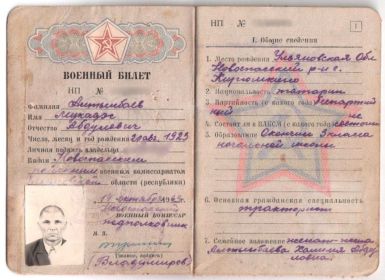 ВОЕННЫЙ БИЛЕТ
НП №
Фамилия
Имя
Отчество Абдулович
Число, месяц и год рождения 1923
Личная подпись владельца
Выдан Новоспасским
районным военным комиссариатом
области (республики)
октября
ВОЕННЫЙ КОМИССАР
подполковник
М. П.
(Звание, подпись)
(Владимиров)
НП №
1
I. Общие сведения
1. Место рождения Ульяновская Обл
Новоспасский р-н с.
2. Национальность татарин
3. Партийность (с какого года) беспартий
ный
4. Состоит ли в ВЛКСМ (с какого года) не
состоит
5. Образование Окончил 3 класса
начальной школы
6. Основная гражданская специальность
тракторист
7. Семейное положение женат - жена